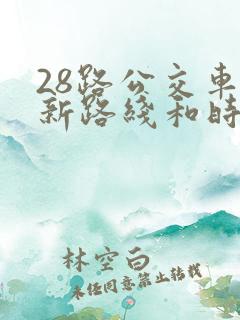 28路公交车
新路线和时
林空白
未经同意禁止转载